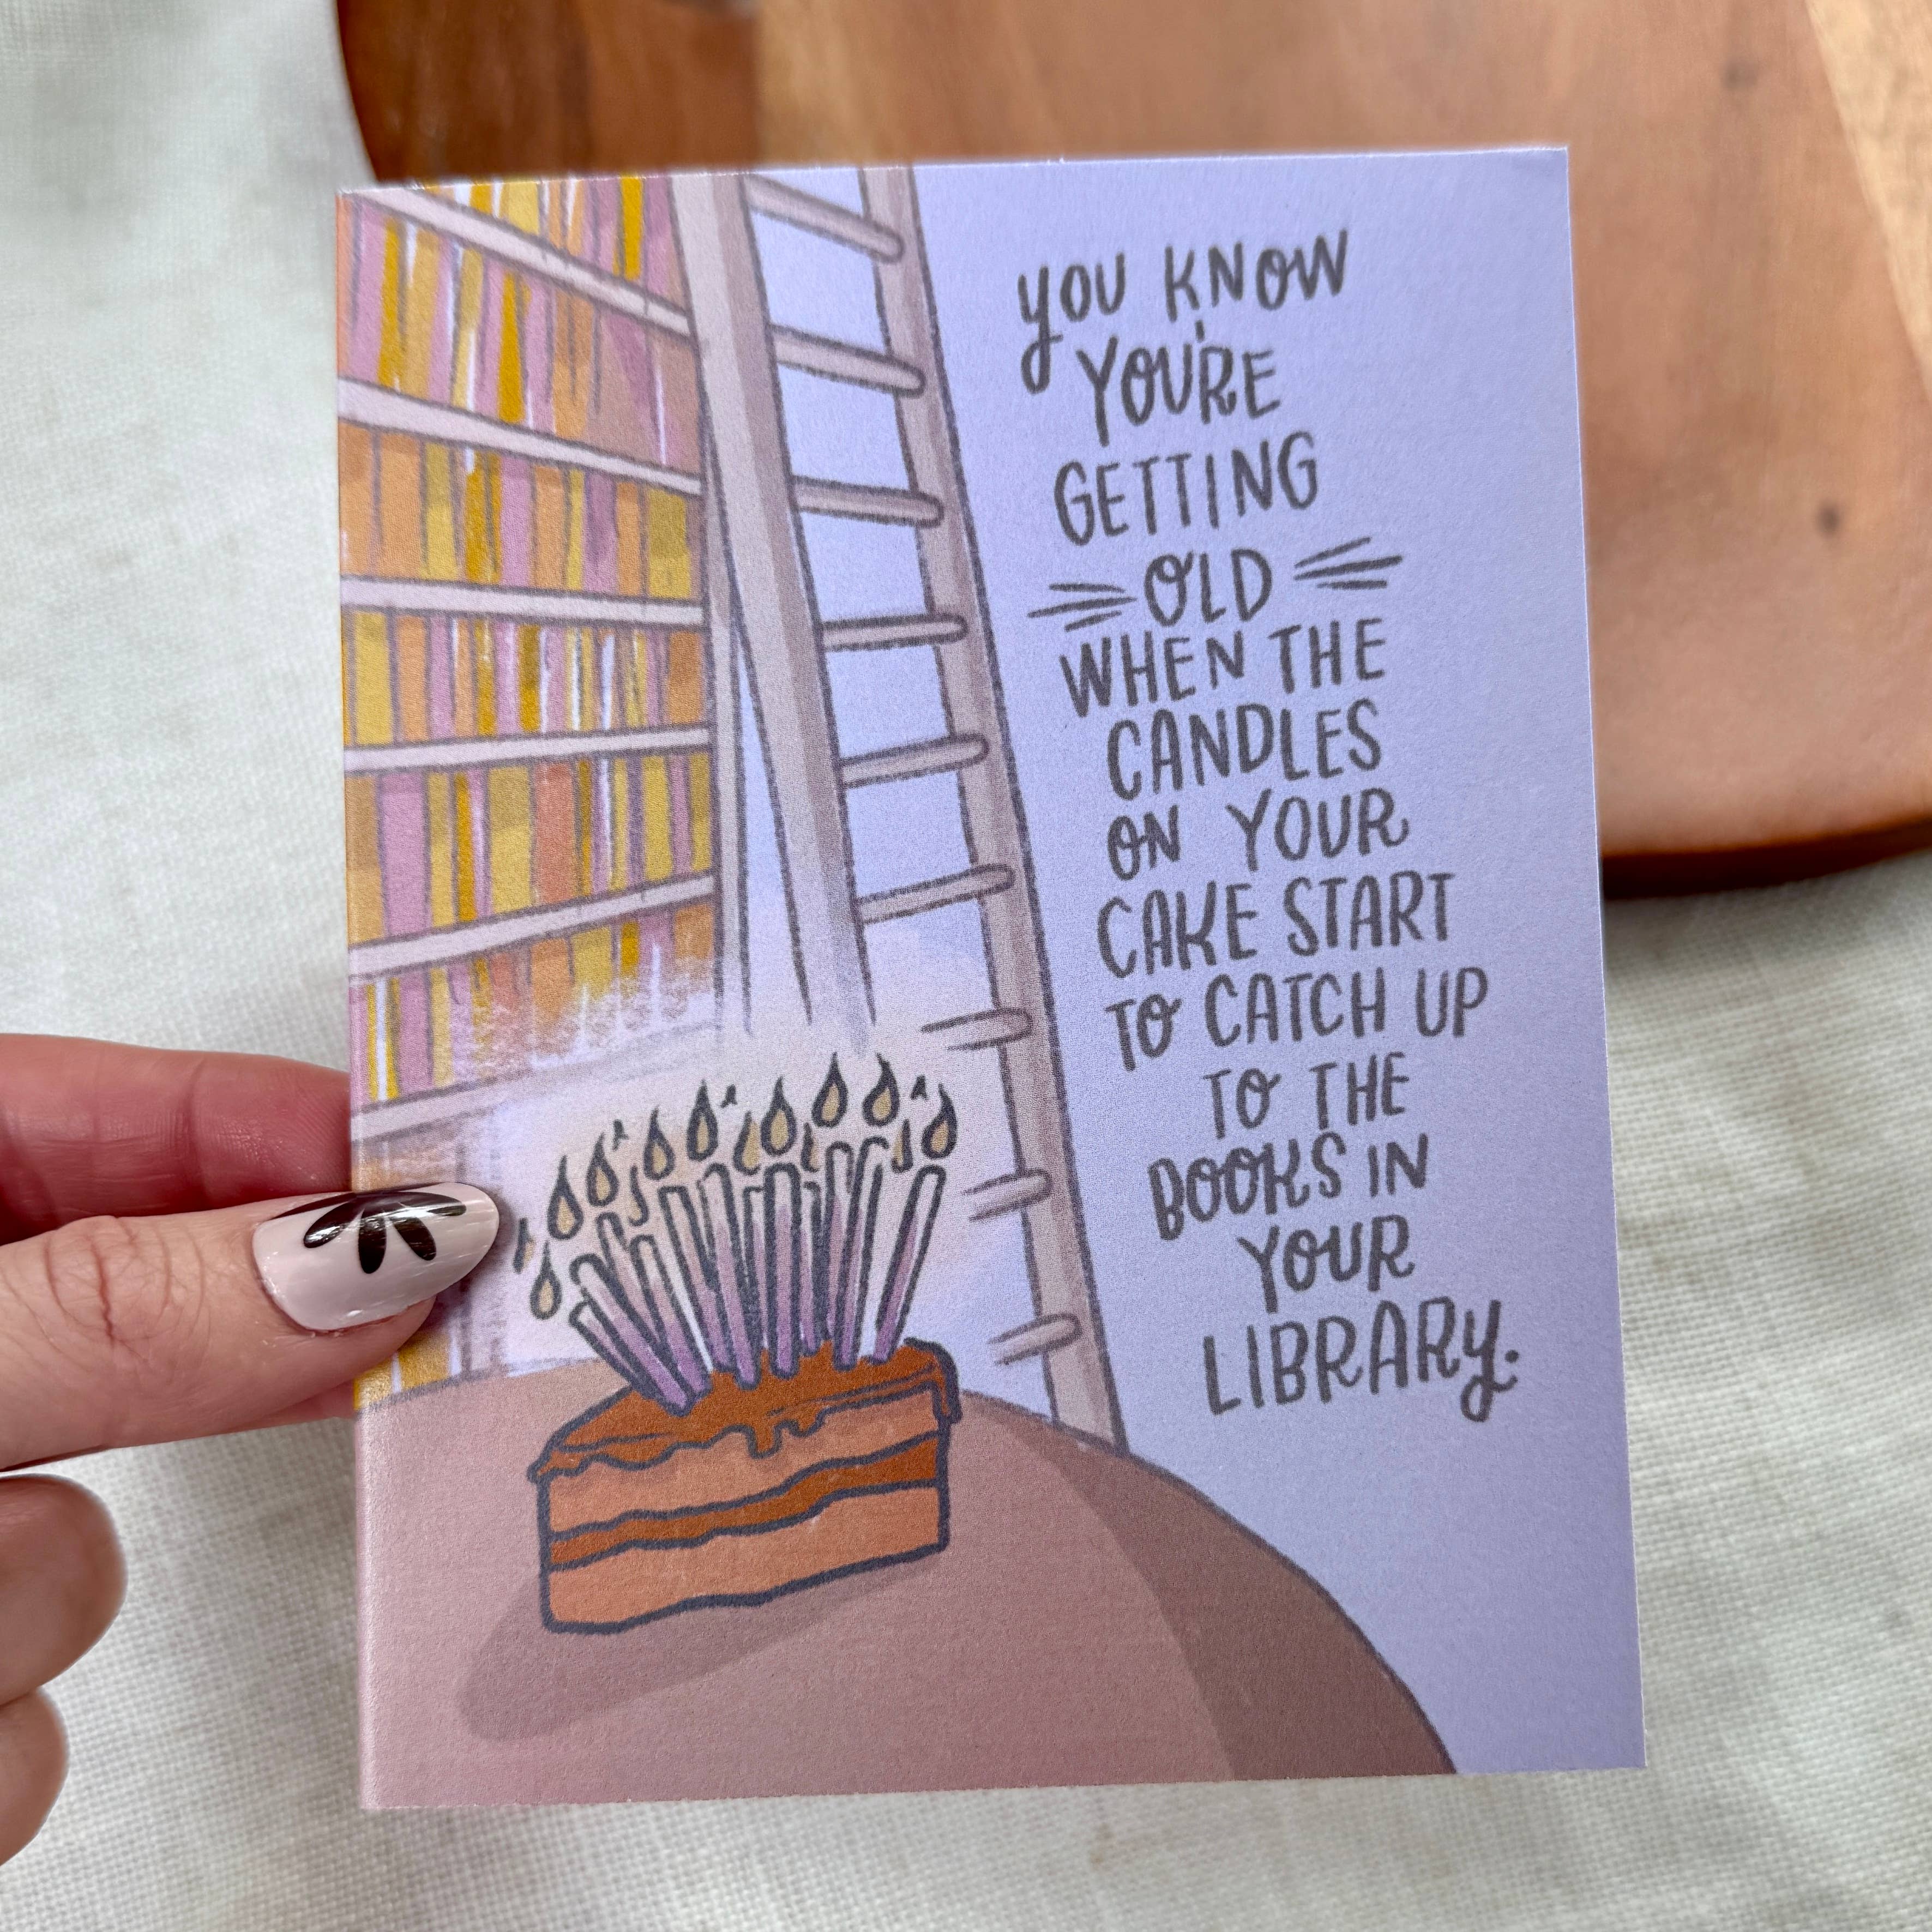 YOU KNOW
YOU'RE
GETTING
OLD
WHEN THE
CANDLES
ON YOUR
CAKE START
TO CATCH UP
TO THE
BOOKS IN
YOUR
LIBRARY.